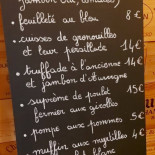 jambon cru, tomates)
• feuilleté au bleu 8 €
• cuisses de grenouilles
et leur persillade 14 €
• truffade à l'ancienne 14 €
et jambon d'Auvergne
• suprême de poulet 15 €
fermier aux girolles
• pompe aux pommes 5 €
• muffin aux myrtilles 4 €
blanc